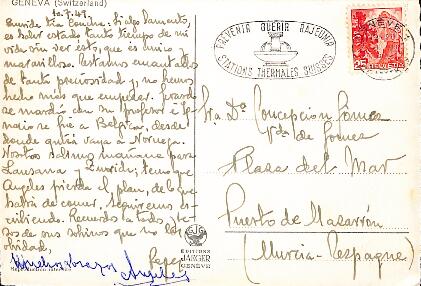 GENEVA (Switzerland)
10.7.48
Querida tía Concha: Si algo lamento,
es haber estado tanto tiempo de mi
vida sin ver esto, que es único y
maravilloso. Estamos encantados
de tanta preciosidad y no hemos
hecho más que empezar. Gerardo
se marchó con su profesor e Ig-
nacio se fue a Bélgica, desde
donde quizá vaya a Noruega.
Nosotros salimos mañana para
Lausana y Zurich; temo que
Angeles pierda el plan, de lo que
habrá de comer. Seguiremos es-
cribiendo. Recuerdos a todos, be-
sos de sus sobrinos que no les
olvidan,
Pepe
Muchos abrazos
Angeles
PREVENIR GUÉRIR RAJEUNIR
STATIONS THERMALES SUISSES
GENÈVE
HELVETIA
25
Sra. Dª Concepcion Gómez
Vda de Gómez
Plaza del Mar
Puerto de Mazarrón
(Murcia-Espagne)
EDITIONS
JAEGER
GENÈVE